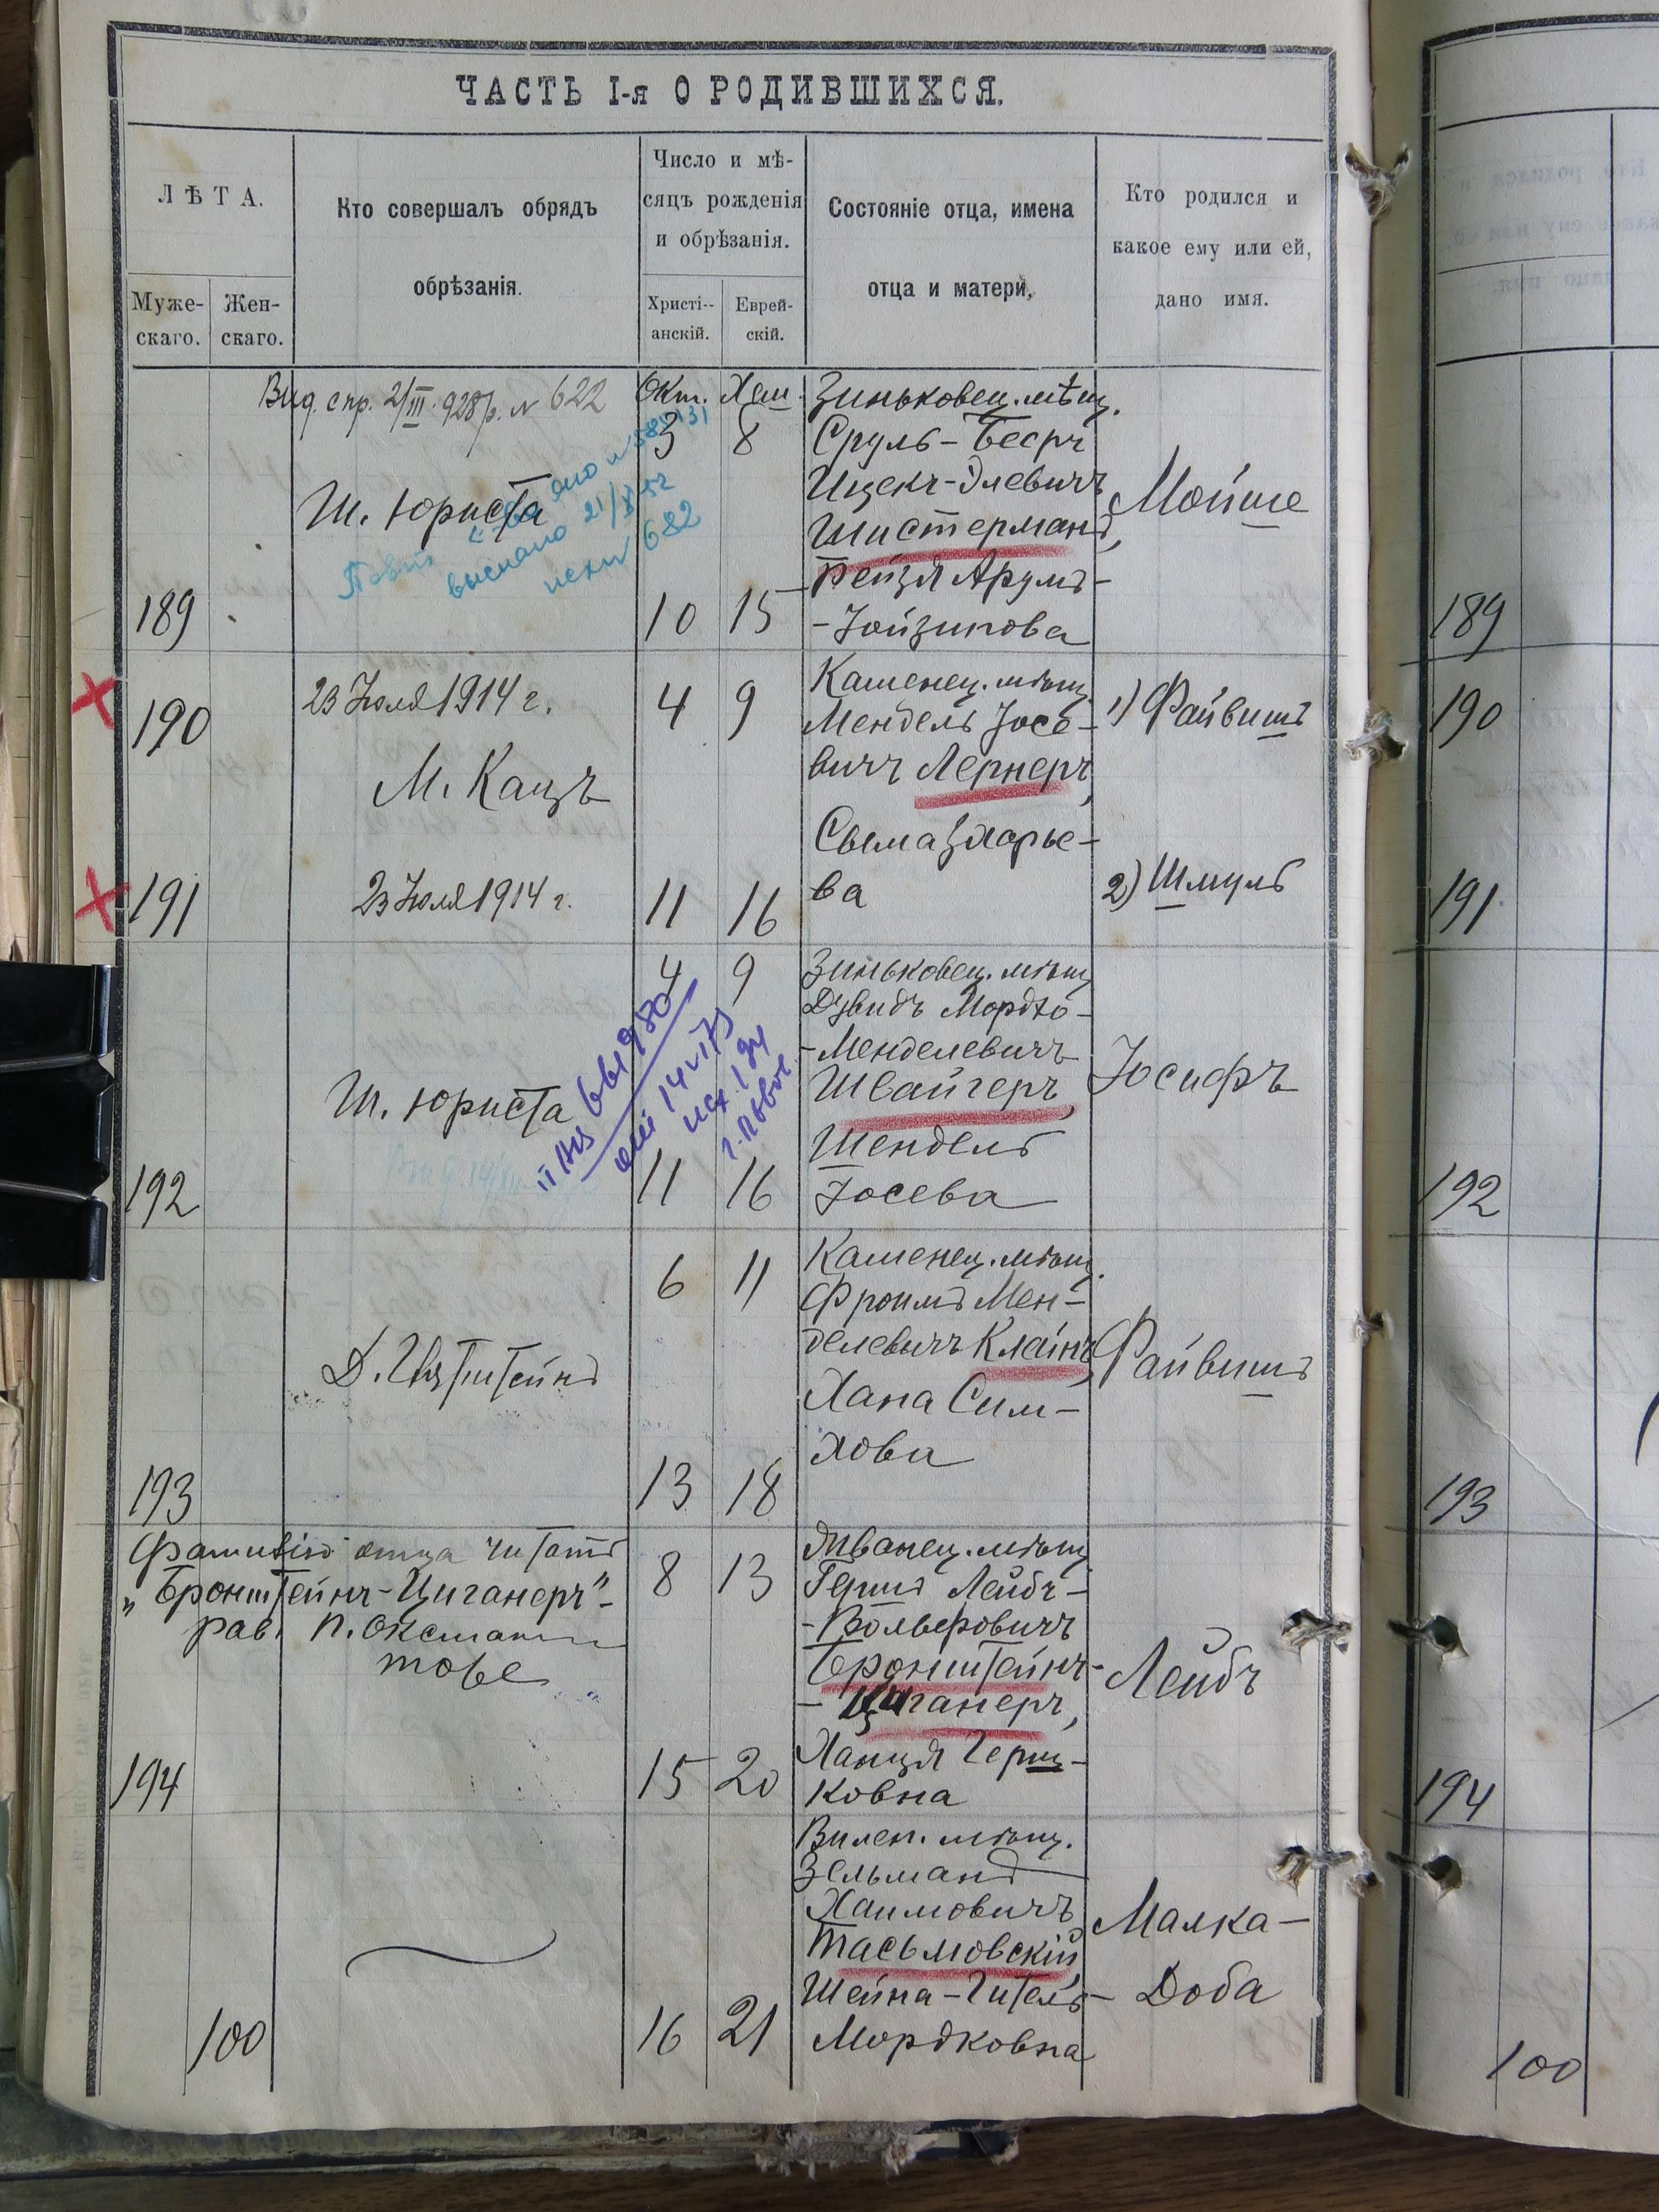 ЧАСТЬ I-я О РОДИВШИХСЯ.
ЛѢТА.
Муже-
скаго.
Жен-
скаго.
Кто совершалъ обрядъ
обрѣзанія.
Число и мѣ-
сяцъ рожденія
и обрѣзанія.
Христі-
анскій.
Еврей-
скій.
Состояніе отца, имена
отца и матери,
Кто родился и
какое ему или ей,
дано имя.
Вид. спр. 2/III 928 р. № 622
Окт. Хеш.
3 8
Ш. Юриста
выслано 21/X 52
682
Зиньковец. мѣщ.
Сруль-Бееръ
Ицекъ-Элевичъ
Шистерманъ,
Рейзя Арумъ-
-Іойзипова
Мойше
189
10 15
189
190
23 Іюля 1914 г.
М. Кацъ
4 9
Каменец. мѣщ.
Мендель Іосе-
вичъ Лернеръ,
Сыма Зхарье-
ва
1) Файвишъ
190
191
23 Іюля 1914 г.
11 16
2) Шмуль
191
4 9
Ш. Юриста
Зиньковец. мѣщ.
Дувидъ Мордхо-
-Менделевичъ
Швайгеръ,
Шендель
Іосева
Іосифъ
192
11 16
192
6 11
Каменец. мѣщ.
Фроимъ Мен-
делевичъ Клайнъ,
Хана Сим-
хова
Файвишъ
193
13 18
193
Фамилію отца читать
„Бронштейнъ-Циганеръ"-
рав. П. Оксман
тове
8 13
Жванец. мѣщ.
Гершъ Лейбъ-
-Вольфовичъ
Бронштейнъ-
-Циганеръ,
Ханця Герш-
ковна
Лейбъ
194
15 20
194
Вилен. мѣщ.
Зельманъ
Хаимовичъ
Тасьмовскій,
Шейна-Гитель
Мордковна
Малка-
- Доба
100
16 21
100